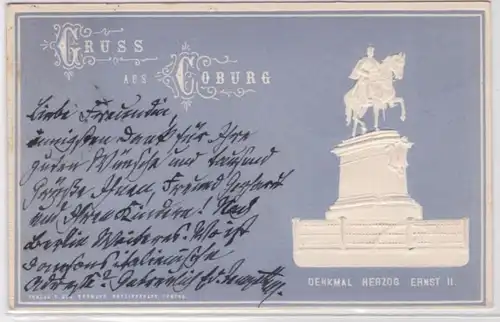 GRUSS
AUS COBURG
Liebe Freundin,
innigsten Dank für Ihre
guten Wünsche und tausend
Grüße Ihnen, Freund
und Ihren Kindern! Nach
Berlin Weiteres. Wo ist
italienische
Adresse?
DENKMAL HERZOG ERNST II.